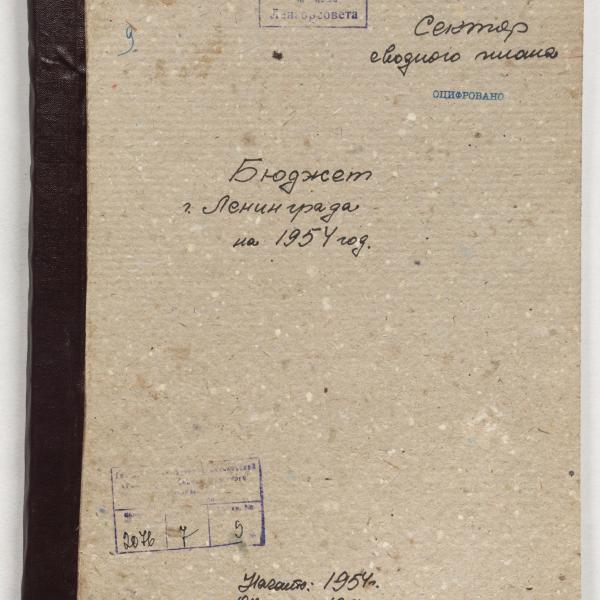 Ленгорсовета
9.
Сектор
сводного плана
ОЦИФРОВАНО
Бюджет
г. Ленинграда
на 1954 год.
2076 7 9
Начато: 1954г.